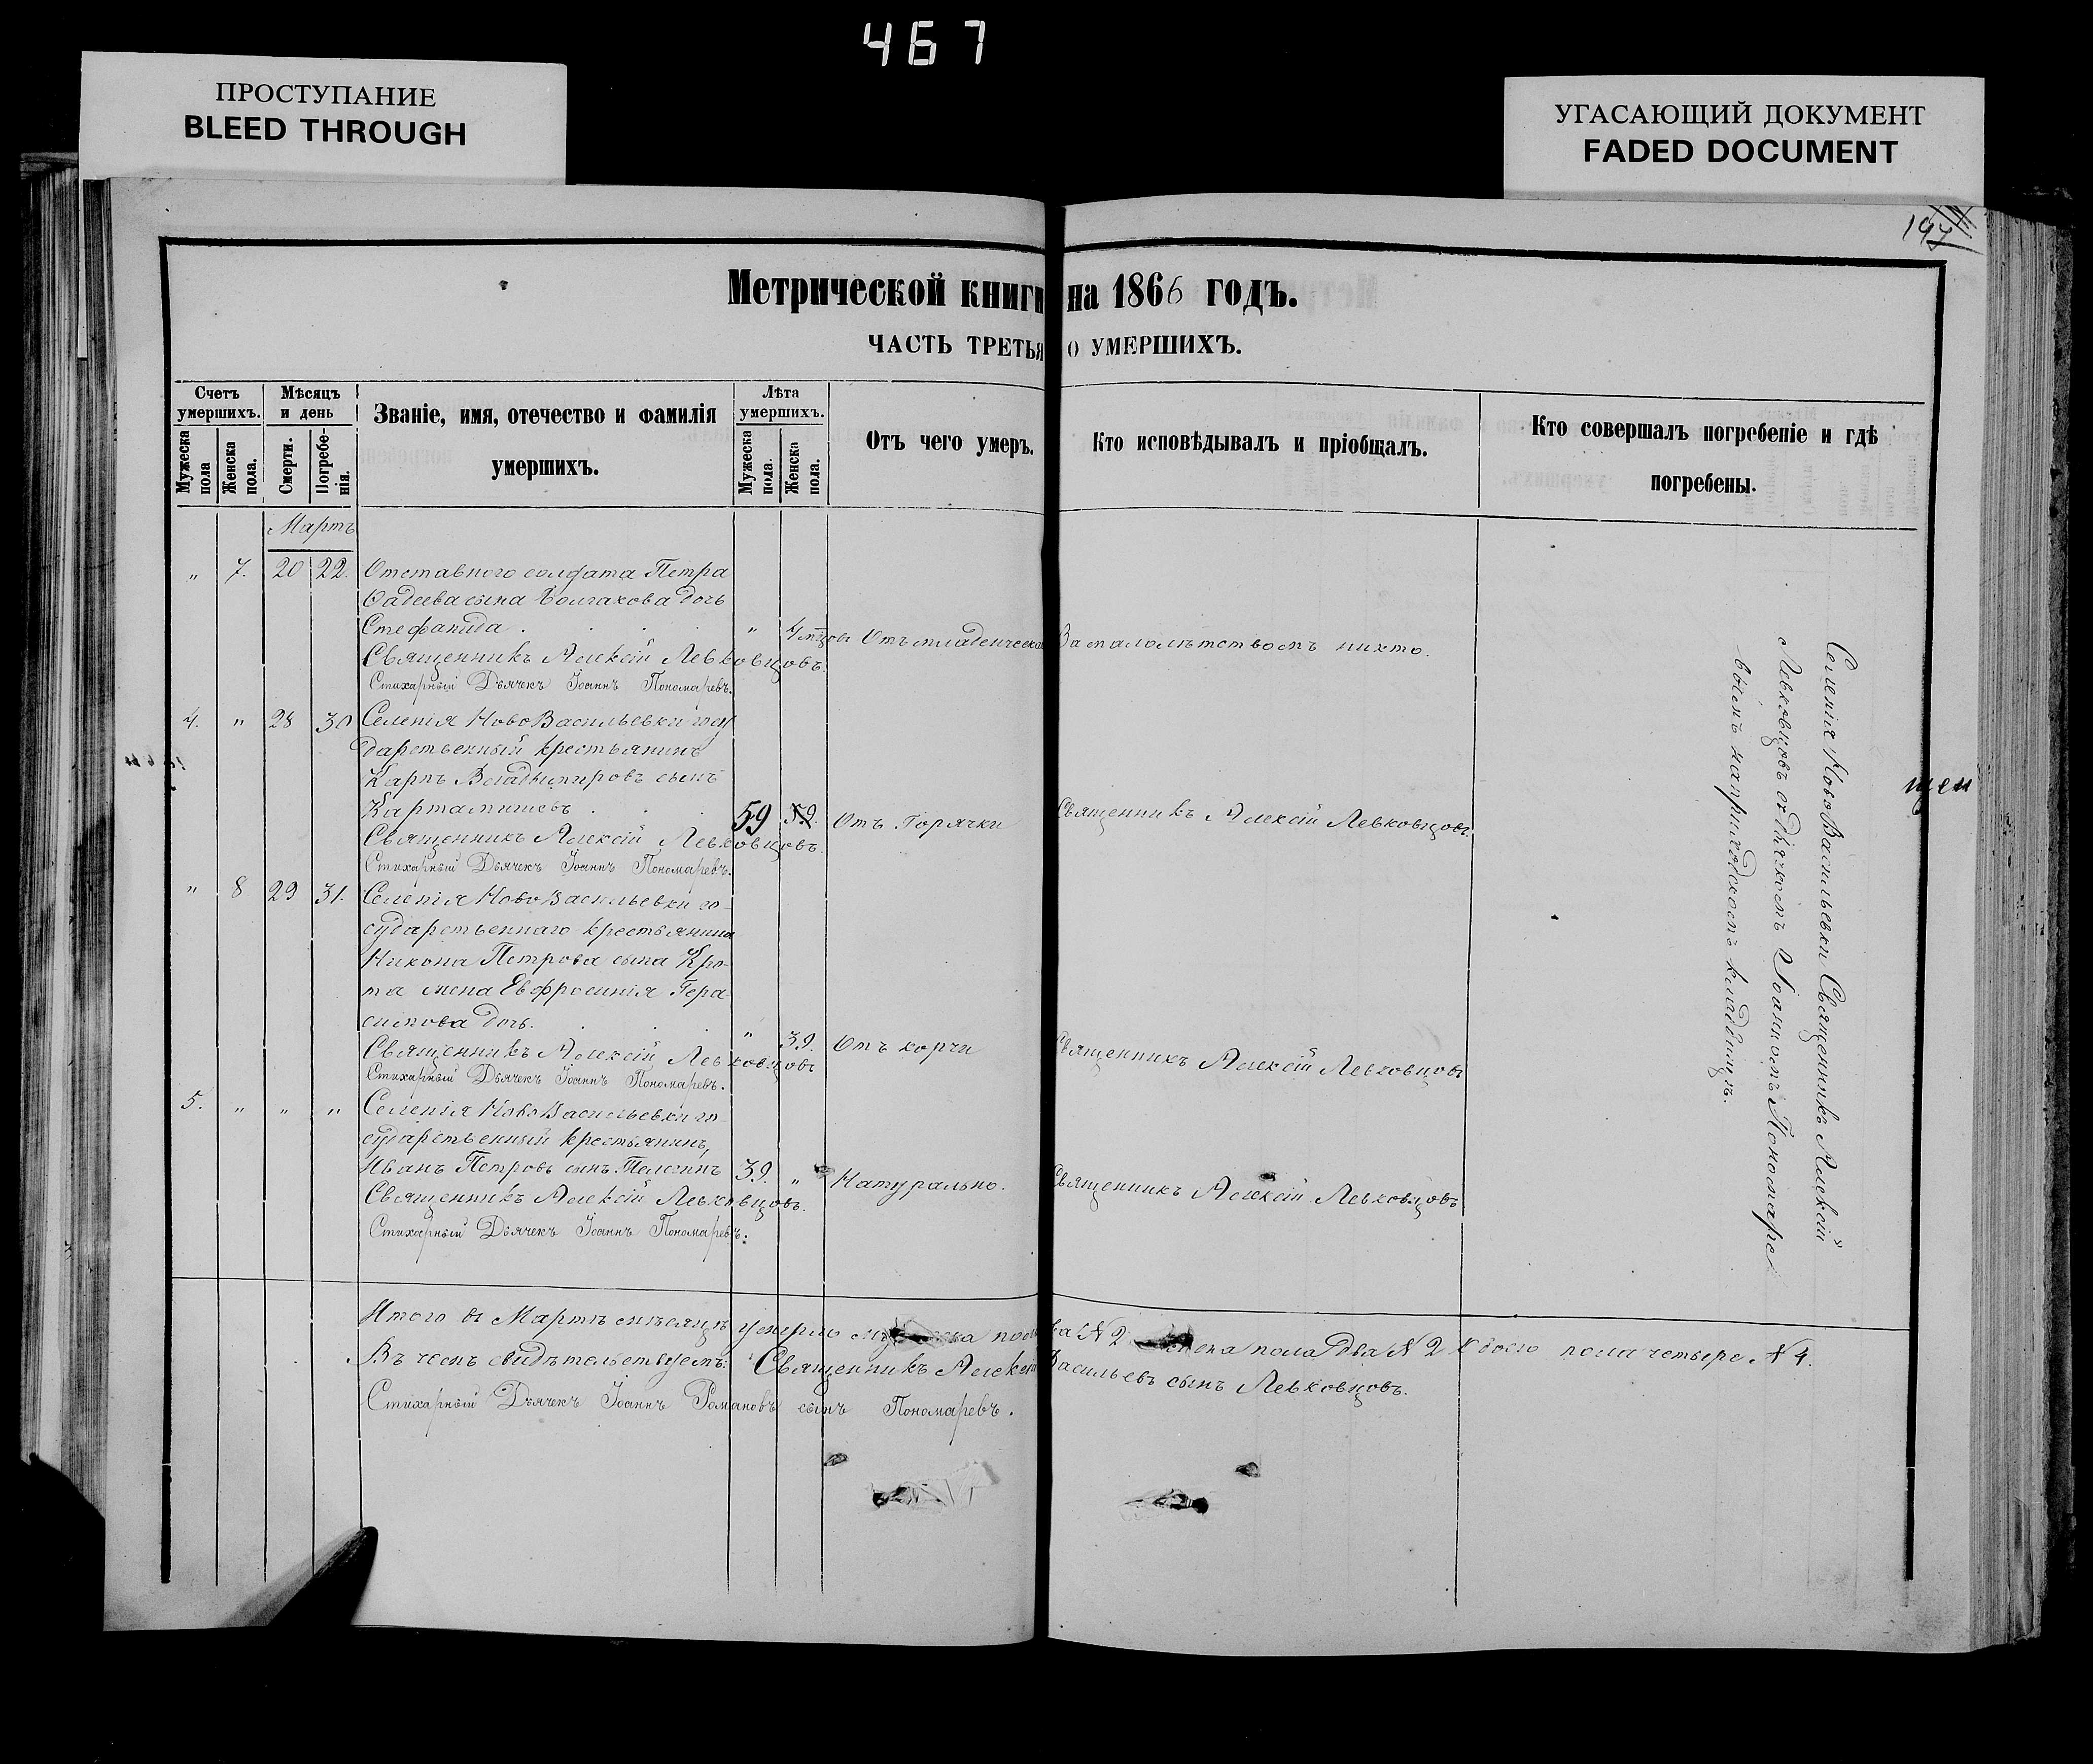 467
ПРОСТУПАНИЕ
BLEED THROUGH
УГАСАЮЩИЙ ДОКУМЕНТ
FADED DOCUMENT
Метрической книги на 1866 годъ.
ЧАСТЬ ТРЕТЬЯ О УМЕРШИХЪ.
Счетъ умершихъ.
Мужеска пола
Женска пола.
Мѣсяцъ и день
Смерти.
Погребенія.
Званіе, имя, отечество и фамилія
умершихъ.
Лѣта умершихъ.
Мужеска пола.
Женска пола.
Отъ чего умеръ.
Кто исповѣдывалъ и пріобщалъ.
Кто совершалъ погребеніе и гдѣ
погребены.
Мартъ
" 7. 20 22. Отставного солдата Петра
Фадеева сына дочь
Стефанида . . . . " 4/мцовъ Отъ младенческой За малолѣтствомъ никто.
Священникъ Алексій Левковцовъ.
Стихарный Дьячекъ Іоаннъ Пономаревъ.
4. " 28 30 Селенія НовоВасильевки госу
дарственный крестьянинъ
Карпъ Владимировъ сынъ
Картамышевъ . . . 59 59. Отъ Горячки Священникъ Алексій Левковцовъ.
Священникъ Алексій Левковцовъ.
Стихарный Дьячекъ Іоаннъ Пономаревъ.
" 8 29 31. Селенія НовоВасильевки го-
сударственнаго крестьянина
Никона Петрова сына Кро-
та жена Евфросинія Гера-
симова дочь. . . . " 39. Отъ корчи Священникъ Алексій Левковцовъ
Священникъ Алексій Левковцовъ
Стихарный Дьячекъ Іоаннъ Пономаревъ.
5. " " " Селенія НовоВасильевки го-
сударственный крестьянинъ,
Иванъ Петровъ сынъ Телегинъ 39. " Натурально. Священникъ Алексій Левковцовъ
Священникъ Алексій Левковцовъ.
Стихарный Дьячекъ Іоаннъ Пономаревъ.
Селенія НовоВасильевки Священникъ Алексій
Левковцовъ съ дьячкомъ Іоанномъ Пономаре
вымъ на приходскомъ кладбищѣ.
Итого въ Мартѣ мѣсяцѣ умерло пола два № 2 женска пола два № 2 а обоего пола четыре. № 4.
Въ чемъ свидѣтельствуемъ: Священникъ Алексій Васильевъ сынъ Левковцовъ.
Стихарный Дьячекъ Іоаннъ Романовъ сынъ Пономаревъ.